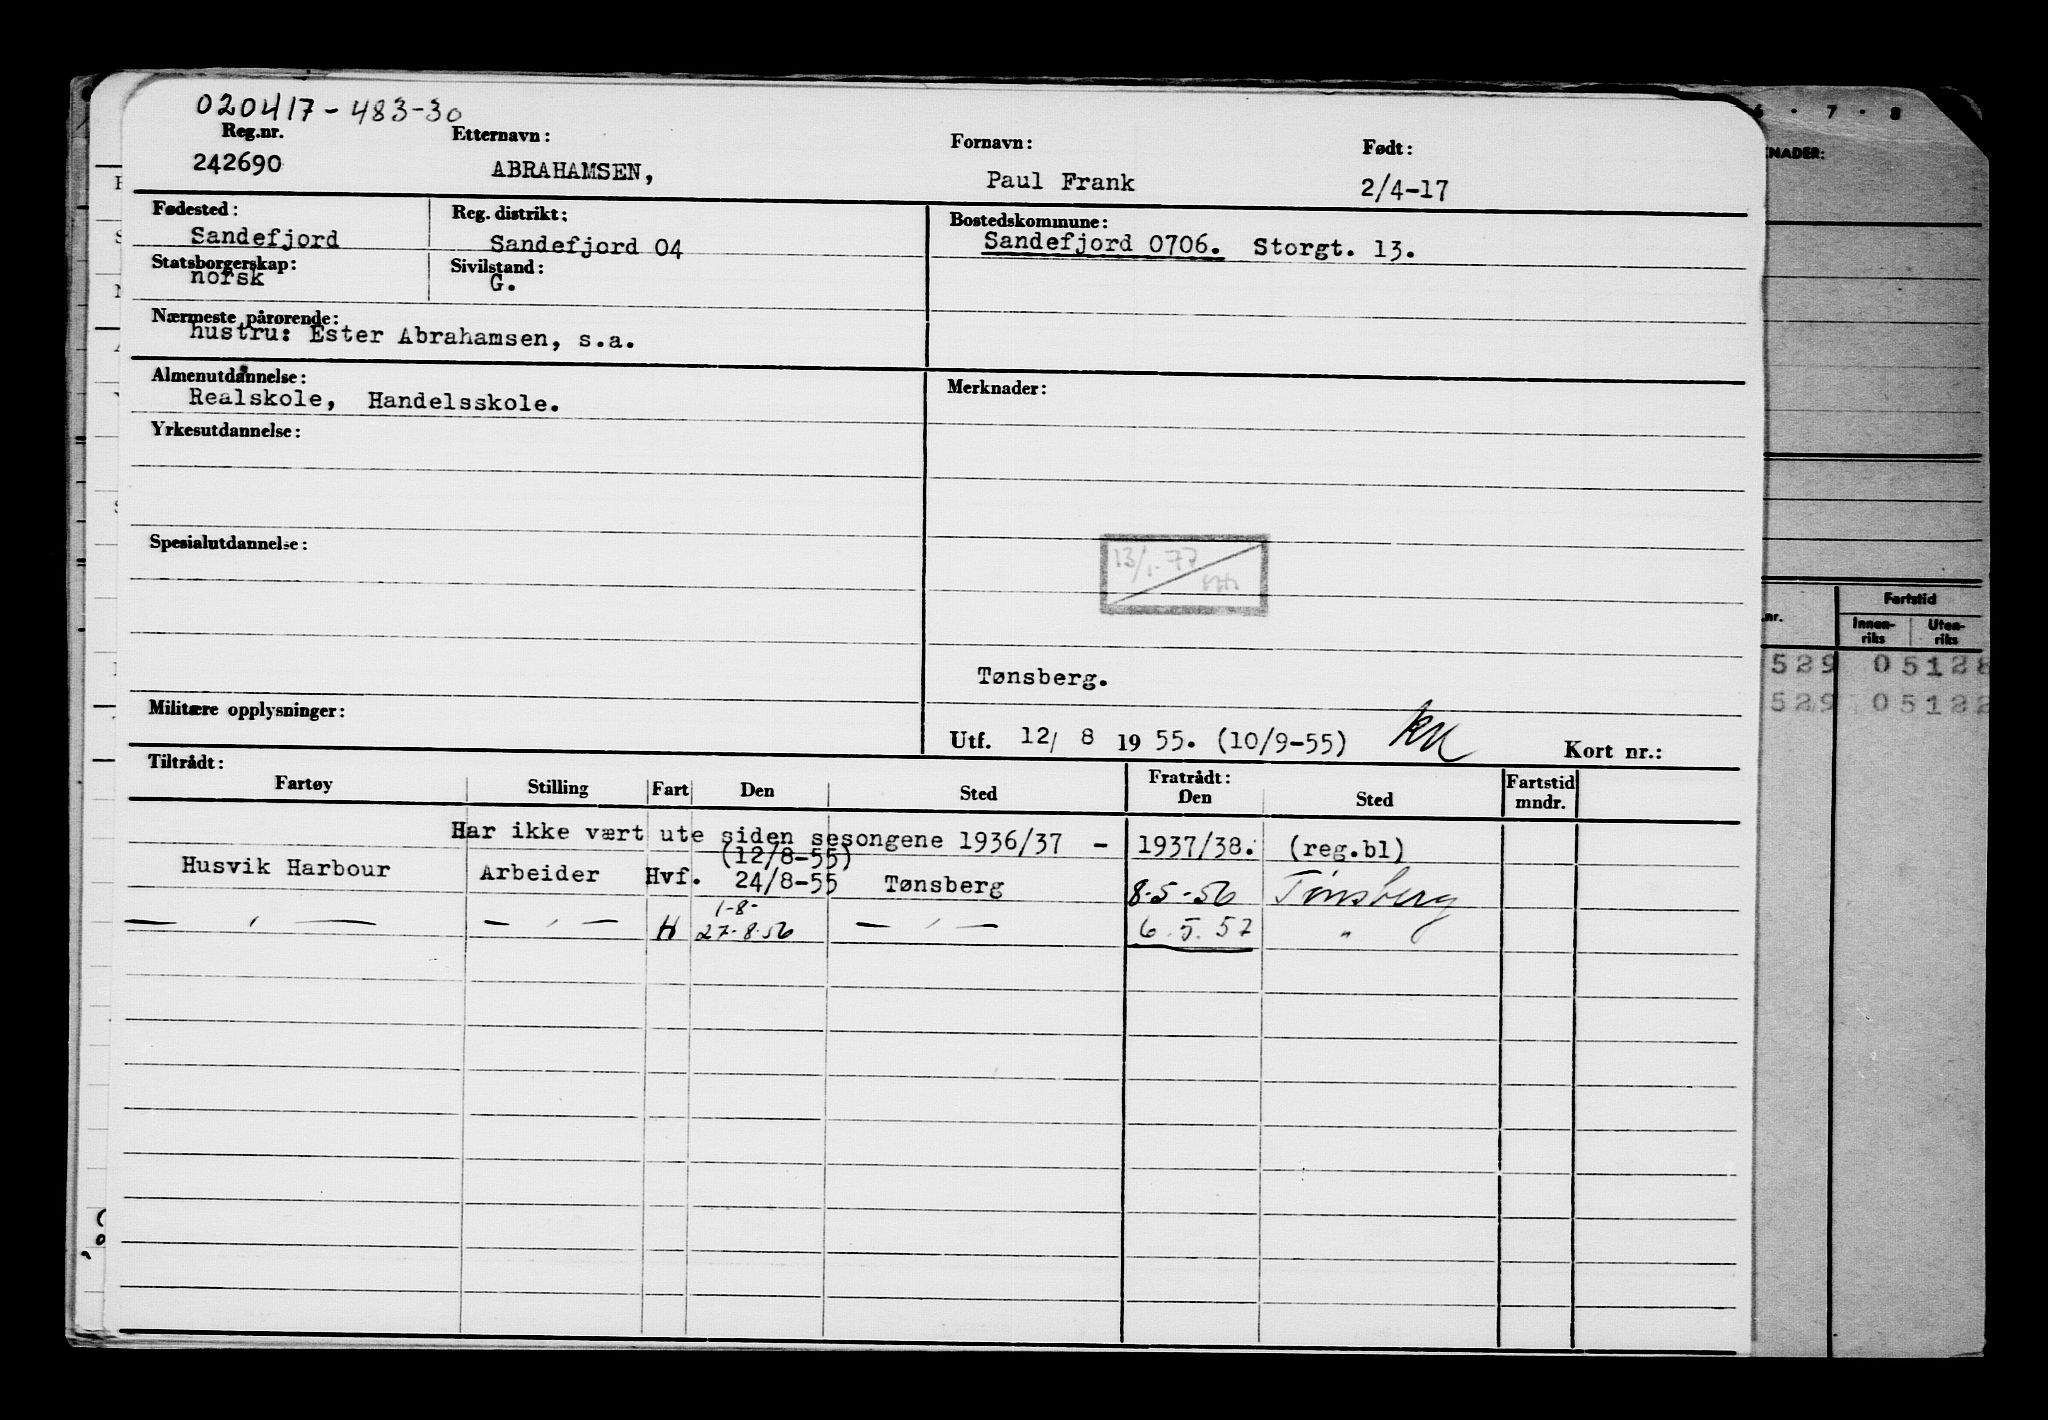 020417-483-30
Reg.nr. Etternavn: Fornavn: Født:
242690 ABRAHAMSEN, Paul Frank 2/4-17
Fødested: Reg. distrikt: Bostedskommune:
Sandefjord Sandefjord 04 Sandefjord 0706. Storgt. 13.
Statsborgerskap: Sivilstand:
norsk G.
Nærmeste pårørende:
hustru: Ester Abrahamsen, s.a.
Almenutdannelse: Merknader:
Realskole, Handelsskole.
Yrkesutdannelse:
Spesialutdannelse:
13/1-77
Tønsberg.
Militære opplysninger:
Utf. 12/ 8 1955. (10/9-55) Kort nr.:
Tiltrådt: Fratrådt:
Fartøy Stilling Fart Den Sted Den Sted Fartstid mndr.
Har ikke vært ute siden sesongene 1936/37 - 1937/38. (reg.bl)
(12/8-55)
Husvik Harbour Arbeider Hvf. 24/8-55 Tønsberg 8-5-56 Tønsberg
1-8-
— " — — " — H 27-8-56 — " — 6.5.57 "
6 · 7 · 8
KNADER:
.nr. Fartstid
Innen-riks Uten-riks
529 05128
529 05122